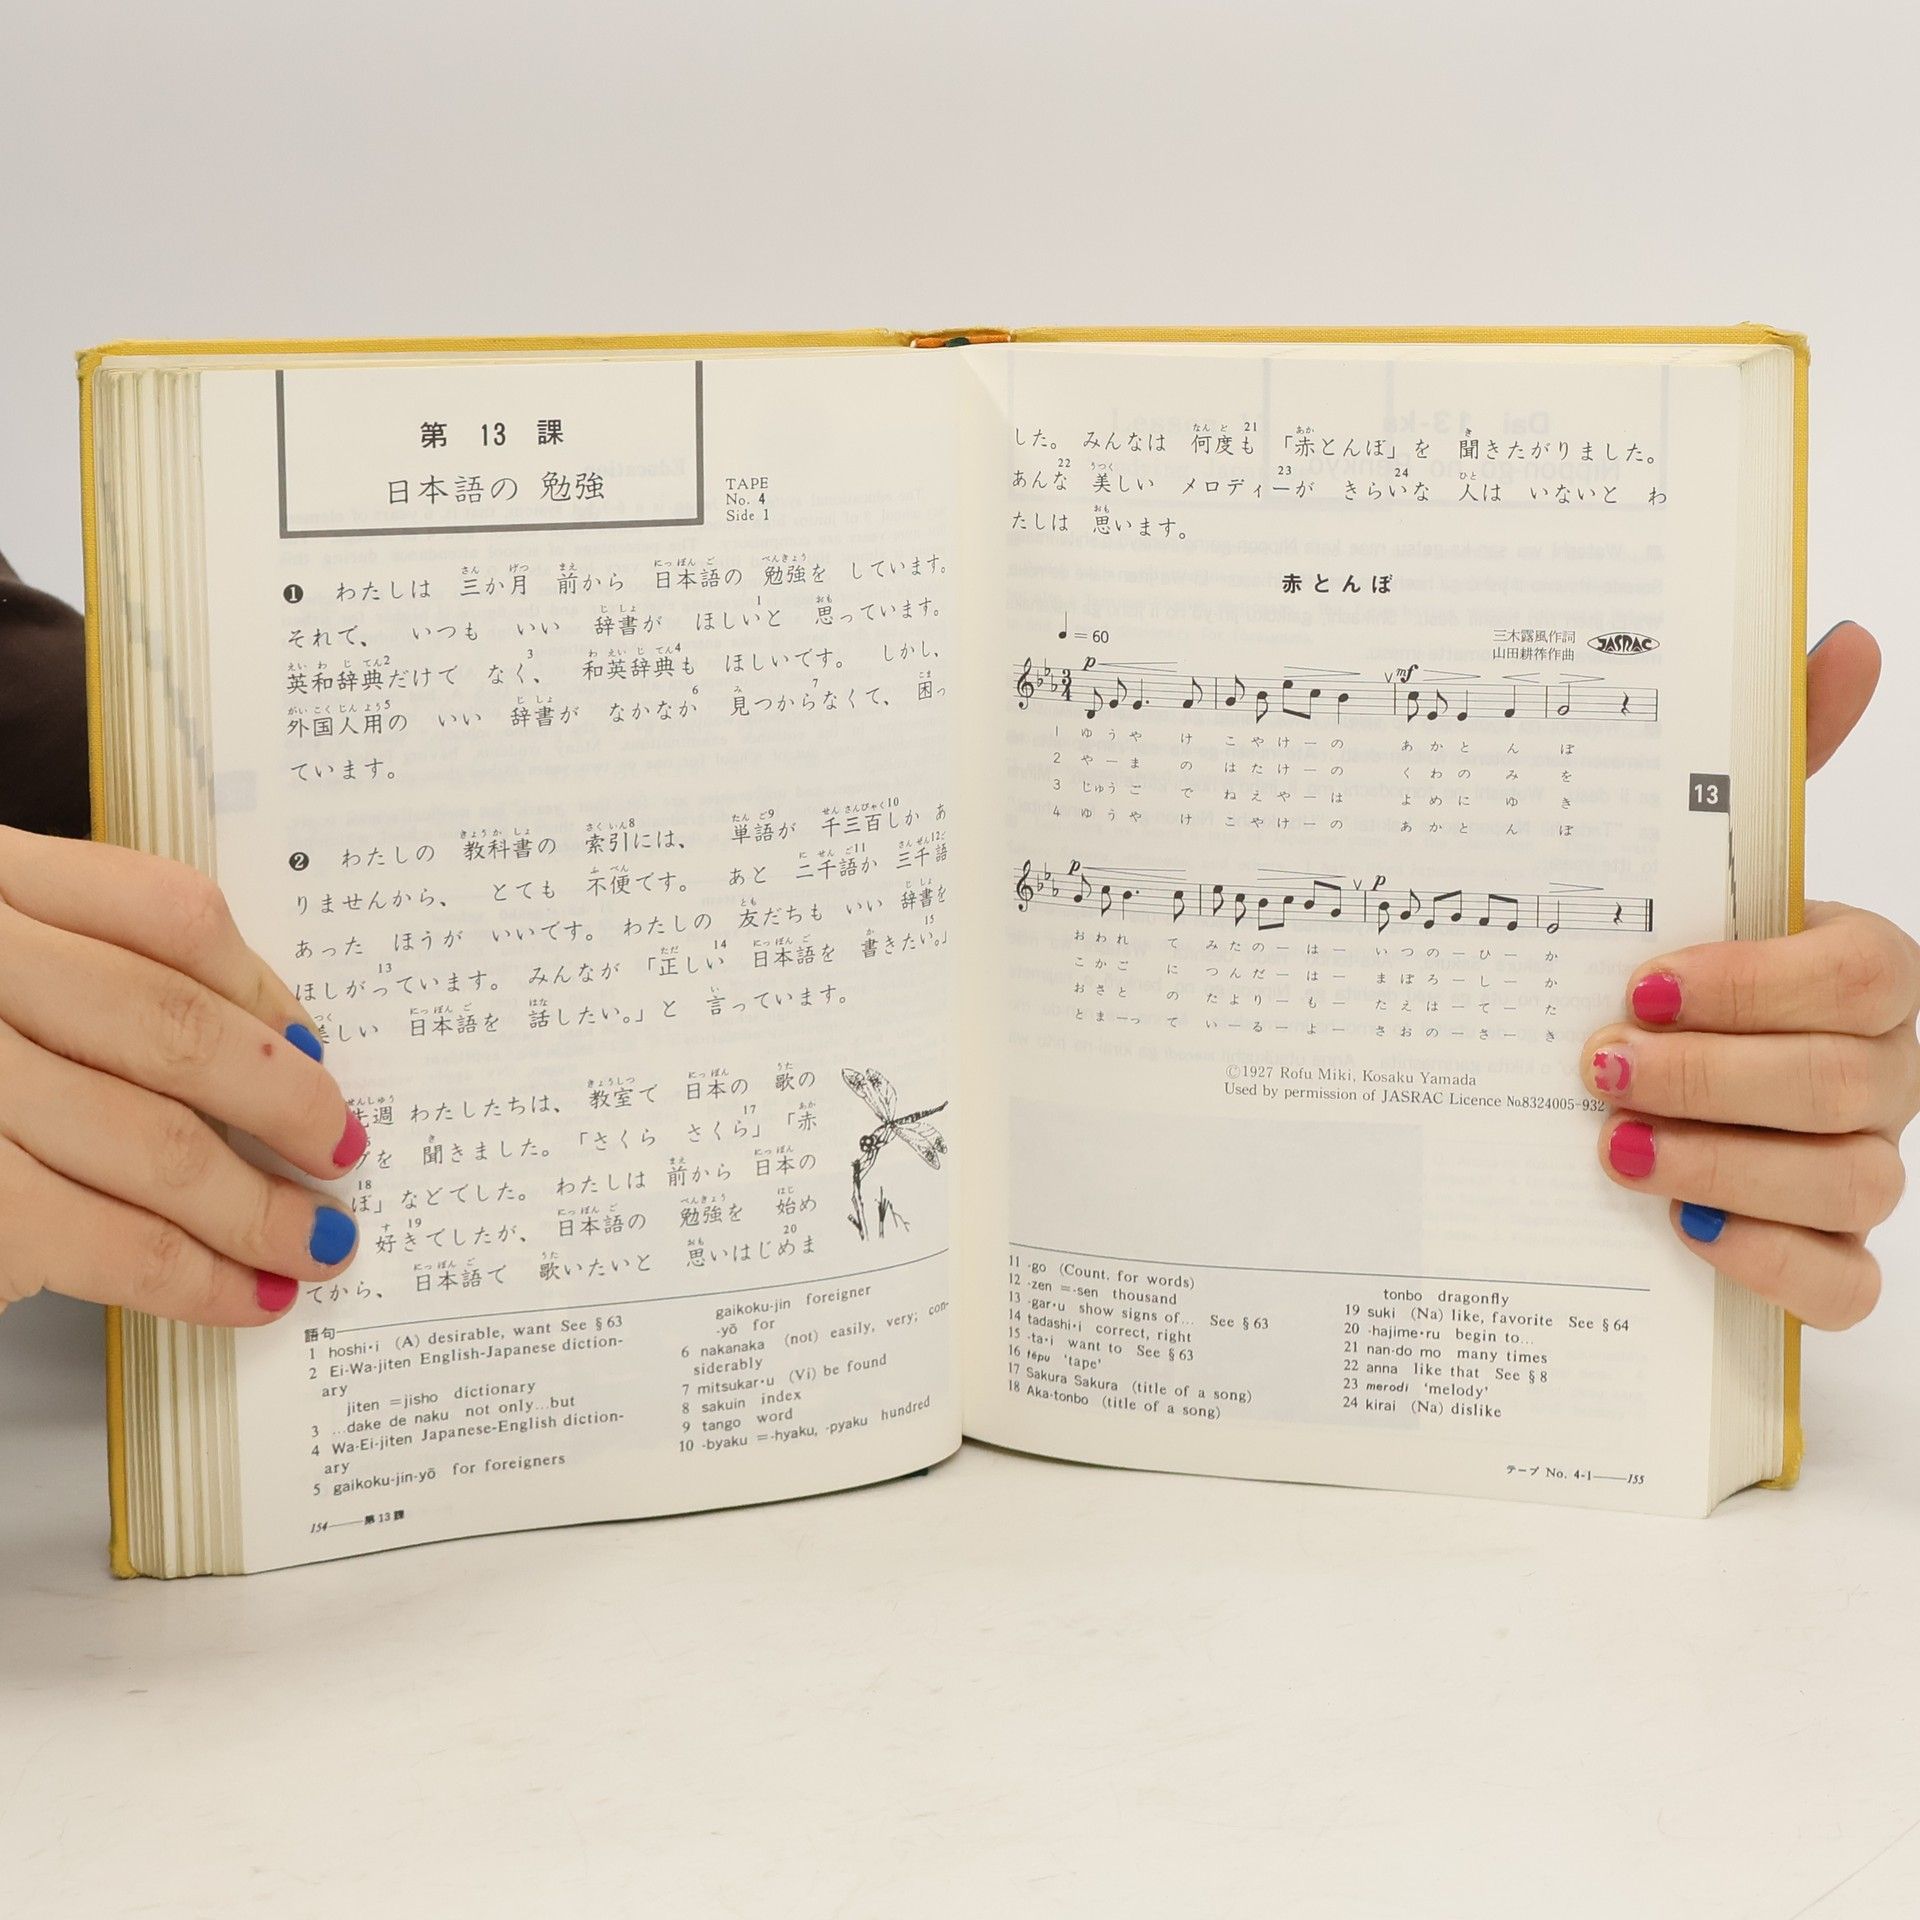 第 13 課
日本語の 勉強
TAPE
No. 4
Side 1
❶ わたしは 三か月 前から 日本語の 勉強を しています。
それで、 いつも いい 辞書が ほしいと 思っています。
英和辞典だけで なく、 和英辞典も ほしいです。 しかし、
外国人用の いい 辞書が なかなか 見つからなくて、 困っ
ています。
❷ わたしの 教科書の 索引には、 単語が 千三百しか あ
りませんから、 とても 不便です。 あと 二千語か 三千語
あった ほうが いいです。 わたしの 友だちも いい 辞書を
ほしがっています。 みんなが 「正しい 日本語を 書きたい。」
しい 日本語を 話したい。」と 言っています。
先週 わたしたちは、 教室で 日本の 歌の
プを 聞きました。 「さくら さくら」 「赤
ぼ」などでした。 わたしは 前から 日本の
好きでしたが、 日本語の 勉強を 始め
てから、 日本語で 歌いたいと 思いはじめま
語句
1 hoshi·i (A) desirable, want See §63
2 Ei-Wa-jiten English-Japanese diction-
ary
jiten =jisho dictionary
3 ...dake de naku not only...but
4 Wa-Ei-jiten Japanese-English diction-
ary
5 gaikoku-jin-yō for foreigners
gaikoku-jin foreigner
-yō for
6 nakanaka (not) easily, very; con-
siderably
7 mitsukar·u (Vi) be found
8 sakuin index
9 tango word
10 -byaku =-hyaku, -pyaku hundred
154——第13課
した。 みんなは 何度も 「赤とんぼ」を 聞きたがりました。
あんな 美しい メロディーが きらいな 人は いないと わ
たしは 思います。
赤とんぼ
♩=60
三木露風作詞
山田耕筰作曲
JASRAC
p
mf
1 ゆうや け こやけーの あかと ん ぼ
2 やーま の はたけーの くわの み を
3 じゅうご で ねえやーは よめに ゆ き
4 ゆうや け こやけーの あかと ん ぼ
p
p
おわれ て みたのーはー いつのーひー か
こかご に つんだーはー まぼろーしー か
おさと の たよりーもー たえはーてー た
とまーっ て いーるーよー さおのーさー き
©1927 Rofu Miki, Kosaku Yamada
Used by permission of JASRAC Licence №8324005-932
13
11 -go (Count. for words)
12 -zen =-sen thousand
13 -gar·u show signs of... See §63
14 tadashi·i correct, right
15 -ta·i want to See §63
16 tēpu 'tape'
17 Sakura Sakura (title of a song)
18 Aka-tonbo (title of a song)
tonbo dragonfly
19 suki (Na) like, favorite See §64
20 -hajime·ru begin to...
21 nan-do mo many times
22 anna like that See §8
23 merodī 'melody'
24 kirai (Na) dislike
テープ No. 4-1——155